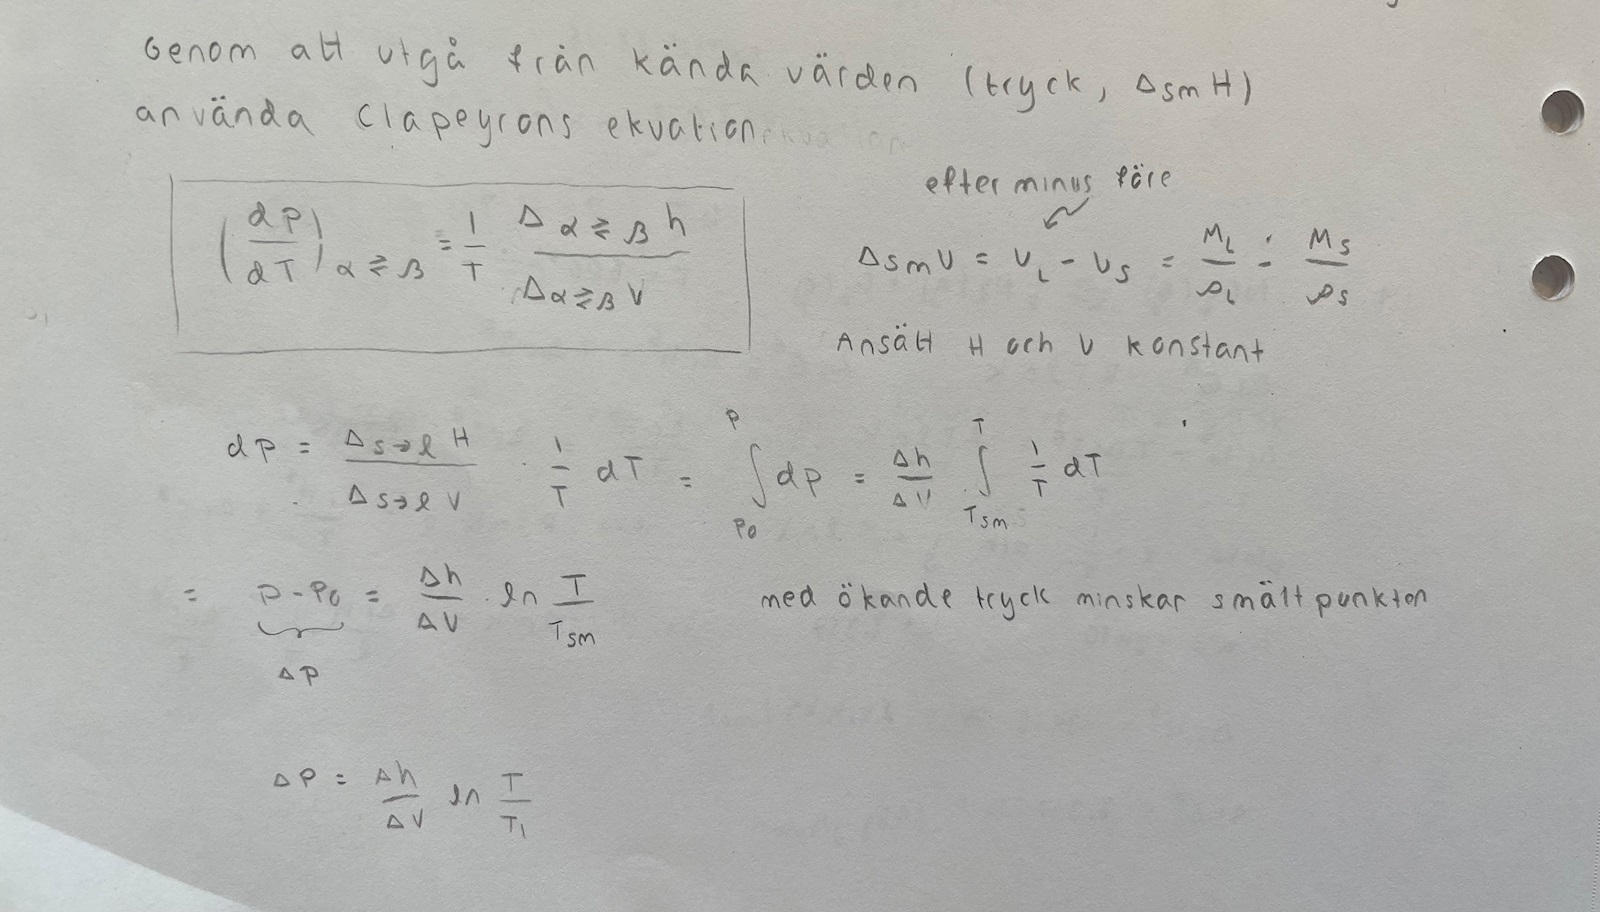 Genom att utgå från kända värden (tryck, ΔsmH)
använda Clapeyrons ekvation
efter minus före
(dP/dT)α⇄β = 1/T · Δα⇄β h / Δα⇄β V
ΔsmV = VL - VS = ML/ρL - MS/ρS
Ansätt H och V konstant
dP = Δs→l H / Δs→l V · 1/T dT = ∫P0^P dP = Δh/ΔV ∫Tsm^T 1/T dT
= P - P0 = Δh/ΔV · ln T/Tsm
med ökande tryck minskar smältpunkten
ΔP
ΔP = Δh/ΔV ln T/T1